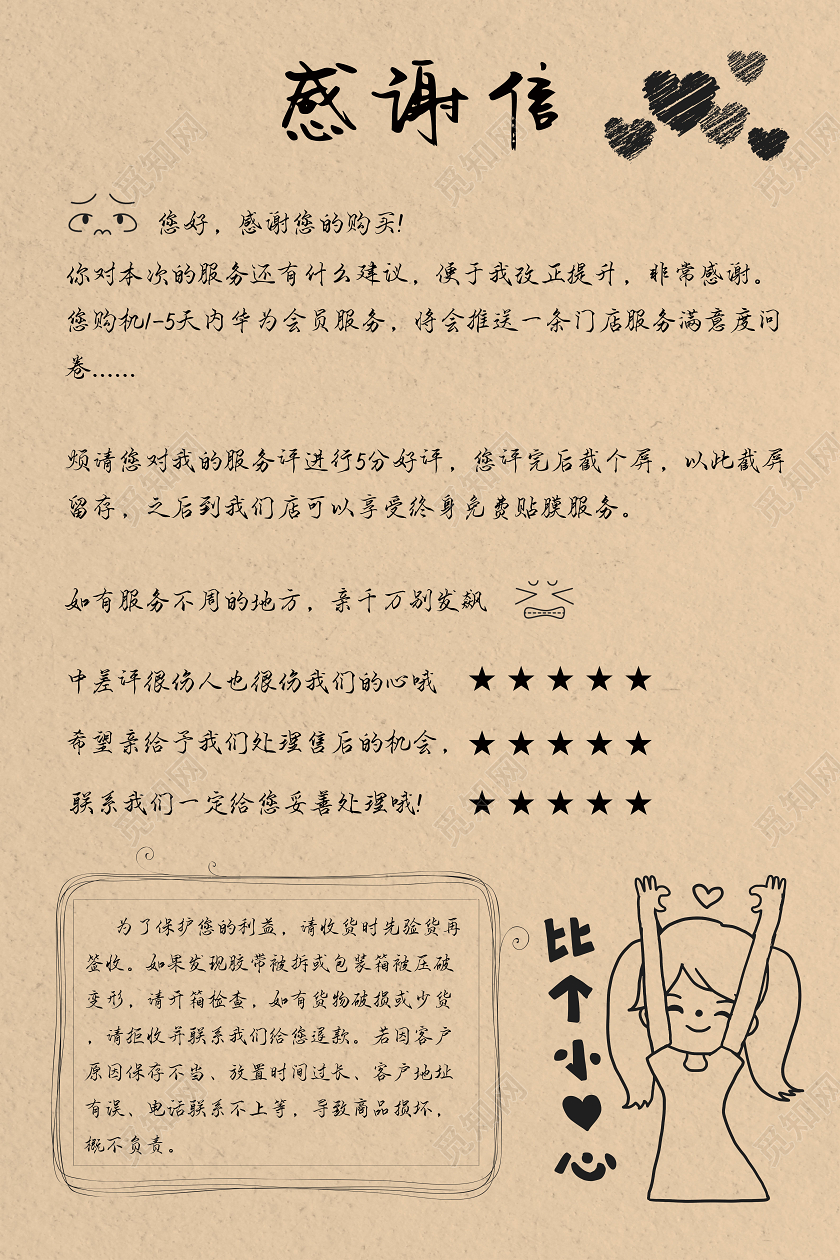 感谢信
您好，感谢您的购买!
你对本次的服务还有什么建议，便于我改正提升，非常感谢。
您购机1-5天内华为会员服务，将会推送一条门店服务满意度问
卷......
烦请您对我的服务评进行5分好评，您评完后截个屏，以此截屏
留存，之后到我们店可以享受终身免费贴膜服务。
如有服务不周的地方，亲千万别发飙
中差评很伤人也很伤我们的心哦 ★★★★★
希望亲给予我们处理售后的机会， ★★★★★
联系我们一定给您妥善处理哦! ★★★★★
为了保护您的利益，请收货时先验货再
签收。如果发现胶带被拆或包装箱被压破
变形，请开箱检查，如有货物破损或少货
，请拒收并联系我们给您退款。若因客户
原因保存不当、放置时间过长、客户地址
有误、电话联系不上等，导致商品损坏，
概不负责。
比
个
小
心
觅知网